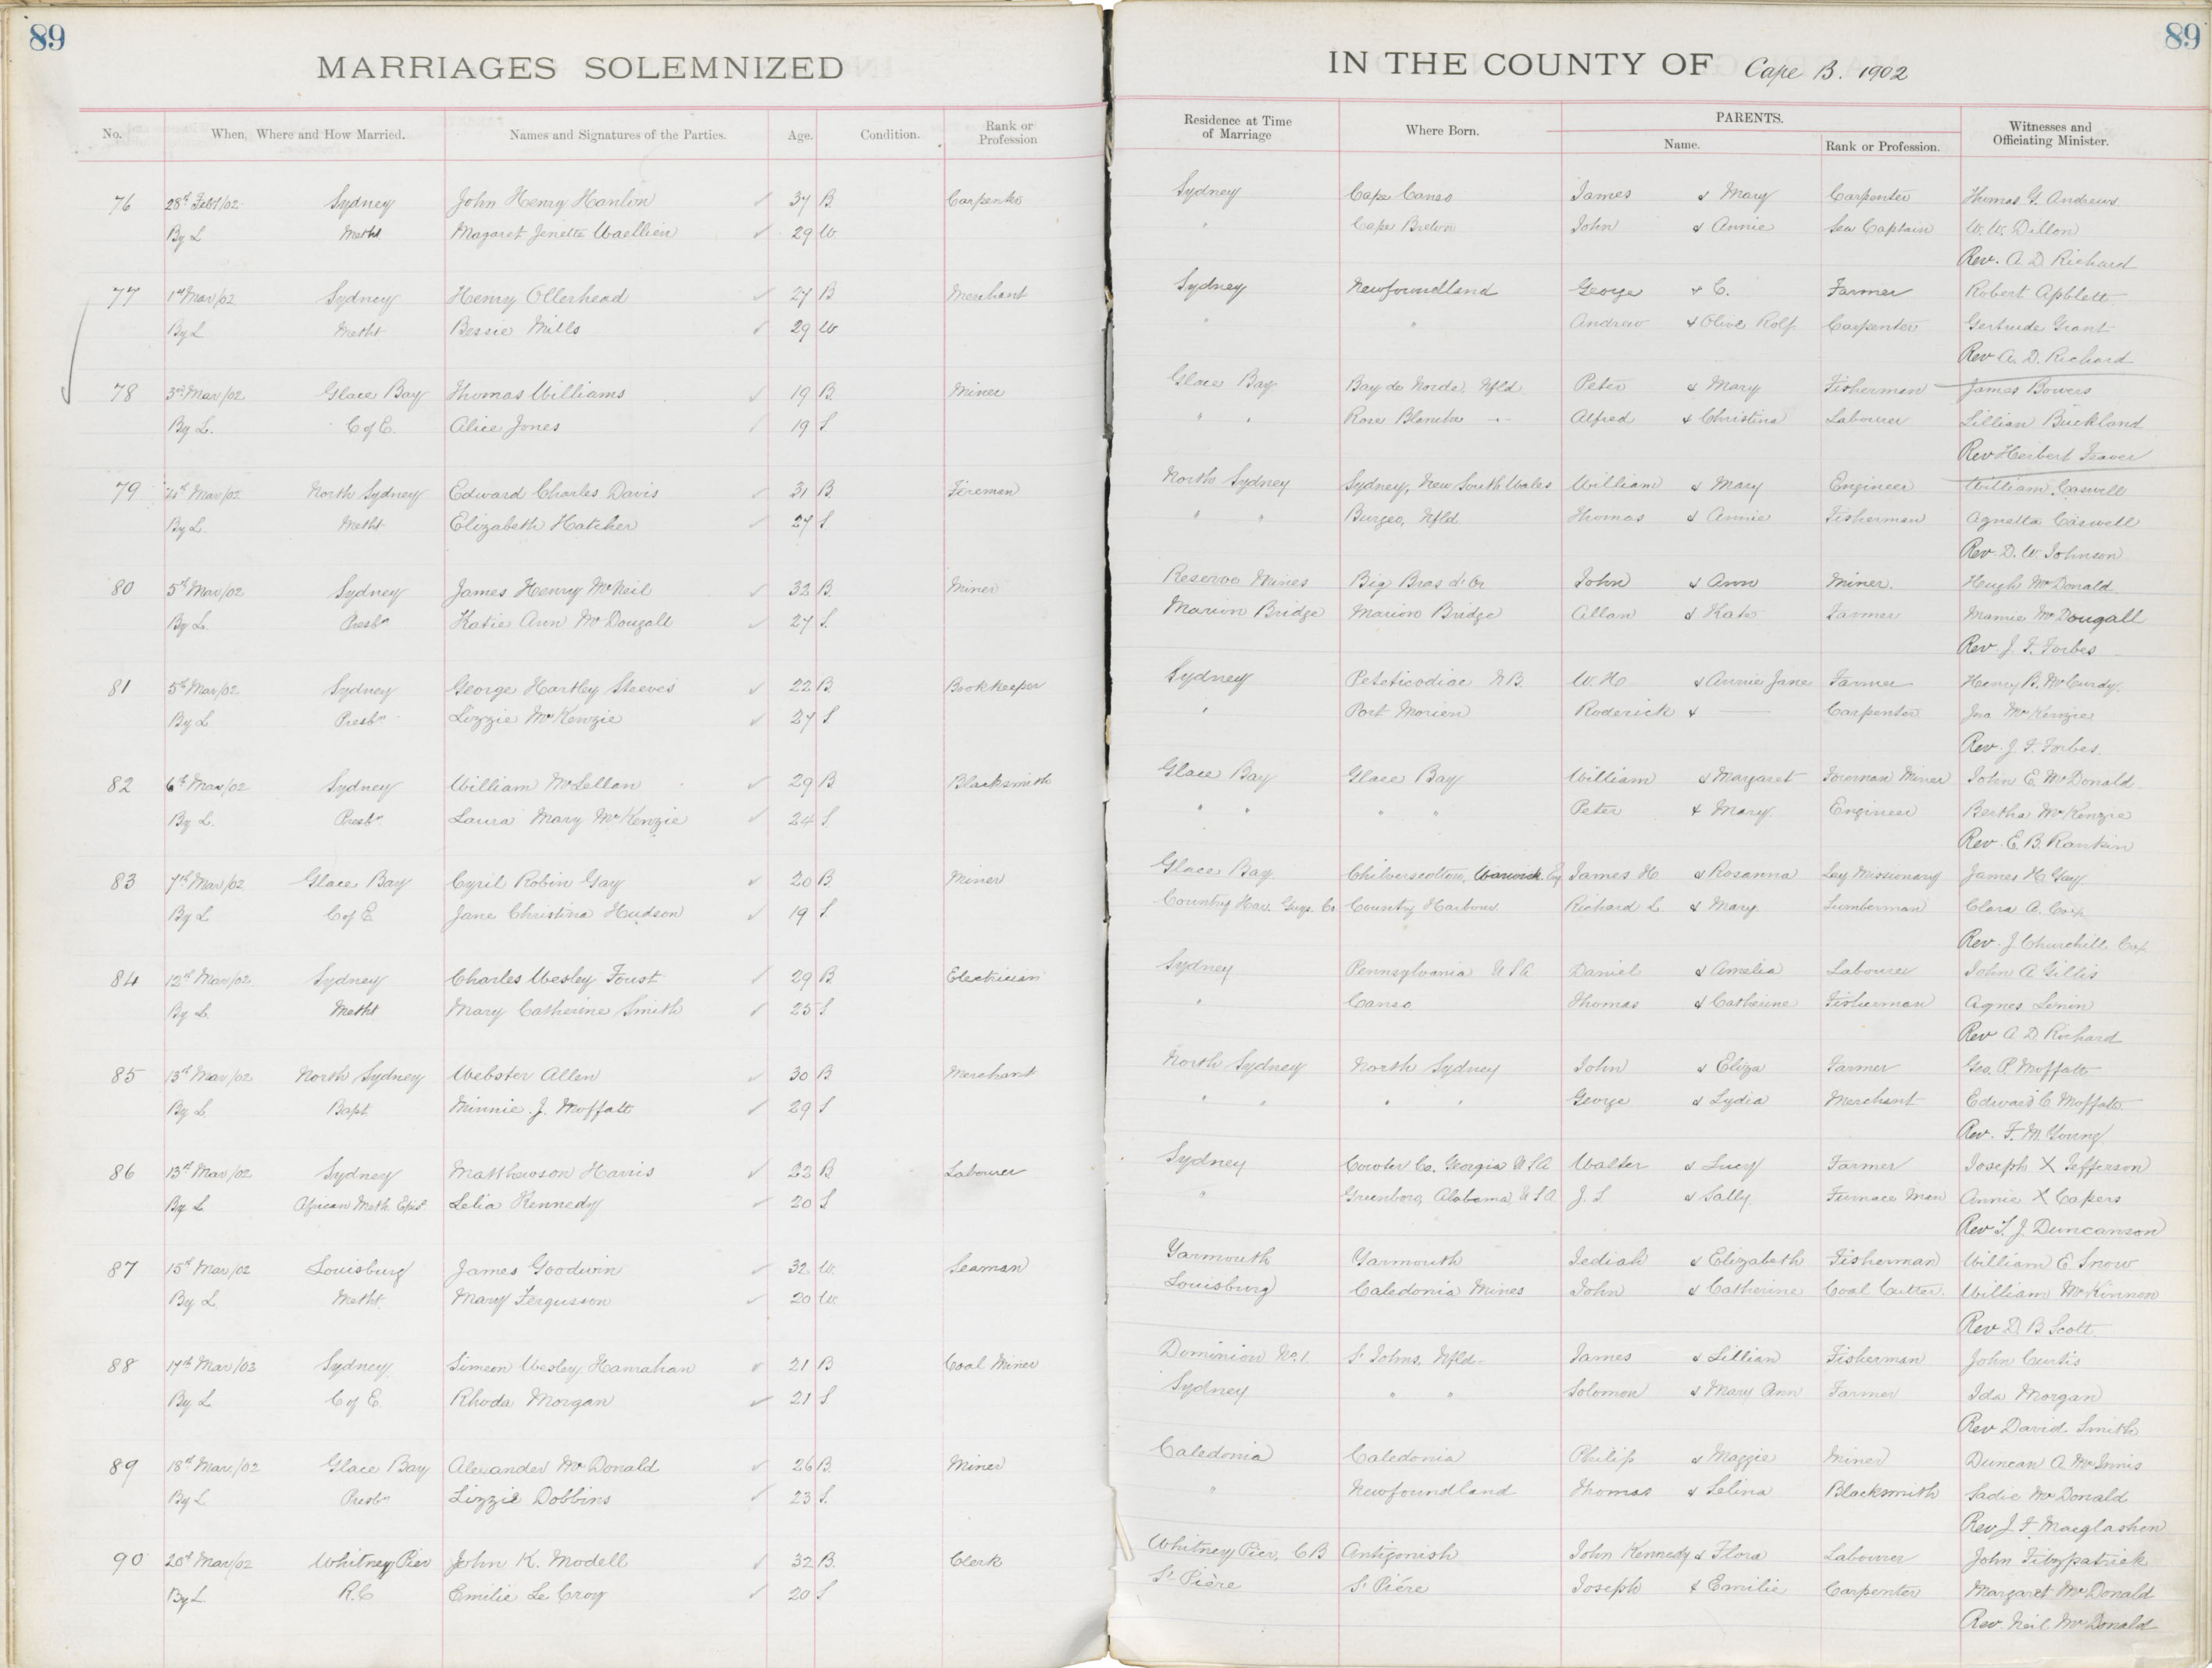 89
MARRIAGES SOLEMNIZED
IN THE COUNTY OF Cape B. 1902
89
No. When, Where and How Married. Names and Signatures of the Parties. Age. Condition. Rank or Profession Residence at Time of Marriage Where Born. PARENTS. Name. Rank or Profession. Witnesses and Officiating Minister.
76 28th Feb/02 Sydney John Henry Hanlon 37 B. Carpenter Sydney Cape Canso James & Mary Carpenter Thomas G. Andrews
By L Metht Magaret Jenette 29 W. " Cape Breton John & Annie Sea Captain W. W. Dillon
Rev. A. D. Richard
77 1st Mar/02 Sydney Henry Ollerhead 27 B Merchant Sydney Newfoundland George & C. Farmer Robert Apblett
By L Metht Bessie Mills 29 W " " Andrew & Olive Rolf Carpenter Gertrude Grant
Rev A. D. Richard
78 3rd Mar/02 Glace Bay Thomas Williams 19 B. Miner Glace Bay Bay de Norde, Nfld. Peter & Mary Fisherman James Bowers
By L. C of E. Alice Jones 19 S " " Rose Blanche " Alfred & Christina Labourer Lillian Buckland
Rev Herbert Feaver
79 4th Mar/02 North Sydney Edward Charles Davis 31 B. Fireman North Sydney Sydney, New South Wales William & Mary Engineer William Caswell
By L. Metht Elizabeth Hatcher 27 S. " " Burgeo, Nfld. Thomas & Annie Fisherman Agnetta Caswell
Rev. D. W. Johnson
80 5th Mar/02 Sydney James Henry McNeil 32 B. Miner Reserve Mines Big Bras d'Or John & Ann Miner. Hugh McDonald
By L. Presbn Katie Ann McDougall 27 S. Marion Bridge Marion Bridge Allan & Kate Farmer Mamie McDougall
Rev. J. F. Forbes
81 5th Mar/02 Sydney George Hartley Steeves 22 B. Bookkeeper Sydney Peteticodiac N.B. W. H & Annie Jane Farmer Henry B. McCurdy.
By L Presbn Lizzie McKenzie 27 S " Port Morien Roderick & — Carpenter Jno. McKenzie
Rev. J. F. Forbes.
82 6th Mar/02 Sydney William McLellan 29 B Blacksmith Glace Bay Glace Bay William & Margaret Foreman Miner John E. McDonald.
By L. Presbn Laura Mary McKenzie 24 S. " " " " Peter & Mary Engineer Bertha McKenzie
Rev. E. B. Rankin
83 7th Mar/02 Glace Bay Cyril Robin Gay 20 B. Miner Glace Bay Chilverscotton, Warwick. Eng James H & Rosanna Lay Missionary James H. Gay.
By L C of E Jane Christina Hudson 19 S. Country Har. Guys. Co. Country Harbour Richard L. & Mary. Lumberman Clara A. Cox
Rev. J. Churchill Cox
84 12th Mar/02 Sydney Charles Wesley Foust 29 B. Electrician Sydney Pennsylvania U S A Daniel & Amelia Labourer John A Gillis
By L. Metht Mary Catherine Smith 25 S " Canso Thomas & Catherine Fisherman Agnes
Rev A. D. Richard
85 13th Mar/02 North Sydney Webster Allen 30 B. Merchant North Sydney North Sydney John & Eliza Farmer Geo. P. Moffatt
By L Bapt. Minnie. J. Moffatt 29 S " " " " George & Lydia Merchant Edward C. Moffatt
Rev. F. M. Young
86 13th Mar/02 Sydney Matthewson Harris 22 B. Labourer Sydney Co. Georgia U S A Walter & Lucy Farmer Joseph X Jefferson
By L African Meth. Epis. Lelia Kennedy 20 S " Greenboro, Alabama, U S A J. S & Sally. Furnace Man Annie X Capers
Rev. T. J. Duncanson
87 15th Mar/02 Louisburg James Goodwin 32 W. Seaman Yarmouth Yarmouth Jediah & Elizabeth Fisherman William E Snow
By L. Metht Mary Fergusson 20 W. Louisburg Caledonia Mines John & Catherine Coal Cutter. William McKinnon
Rev D. B. Scott
88 17th Mar/03 Sydney Simeon Wesley Hanrahan 21 B Coal Miner Dominion No. 1. St Johns, Nfld. James & Lillian Fisherman John Curtis
By L C of E. Rhoda Morgan 21 S Sydney " " Solomon & Mary Ann Farmer Ida Morgan
Rev David Smith
89 18th Mar/02 Glace Bay Alexander McDonald 26 B. Miner Caledonia Caledonia Philip & Maggie Miner Duncan A. McInnis
By L Presbn Lizzie Dobbins 23 S. " Newfoundland Thomas & Selina Blacksmith Sadie McDonald
Rev J. F. Macglashen
90 20th Mar/02 Whitney Pier John K. Modell 32 B. Clerk Whitney Pier, C B Antigonish John Kennedy & Flora Labourer John Fitzpatrick
By L. R.C Emilie Le Croy 20 S St Pière St Piére Joseph & Emilie Carpenter Margaret McDonald
Rev. Neil McDonald